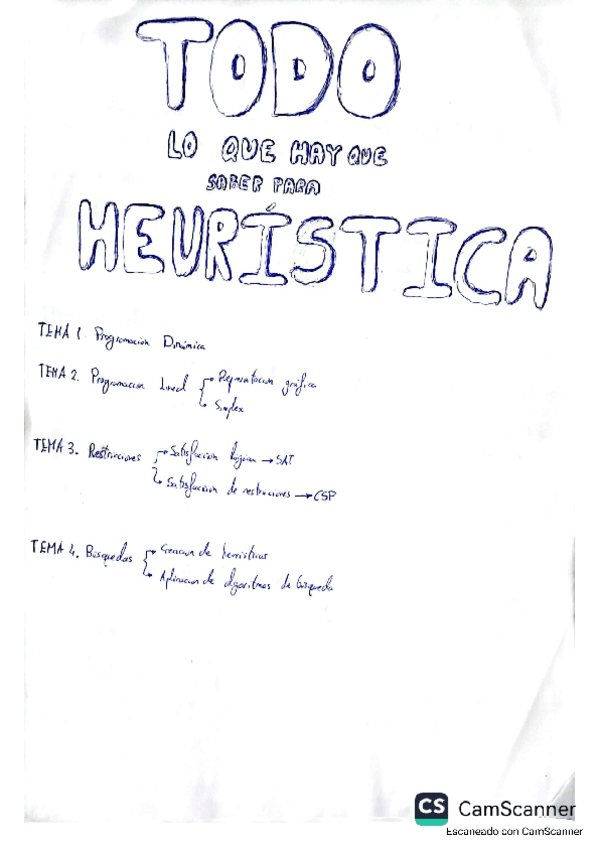 TODO
LO QUE HAY QUE
SABER PARA
HEURÍSTICA
TEMA 1. Programación Dinámica
TEMA 2. Programación Lineal
Representación gráfica
Simplex
TEMA 3. Restricciones
Satisfacción lógica → SAT
Satisfacción de restricciones → CSP
TEMA 4. Búsquedas
Creación de heurísticas
Aplicación de algoritmos de búsqueda
CS CamScanner
Escaneado con CamScanner